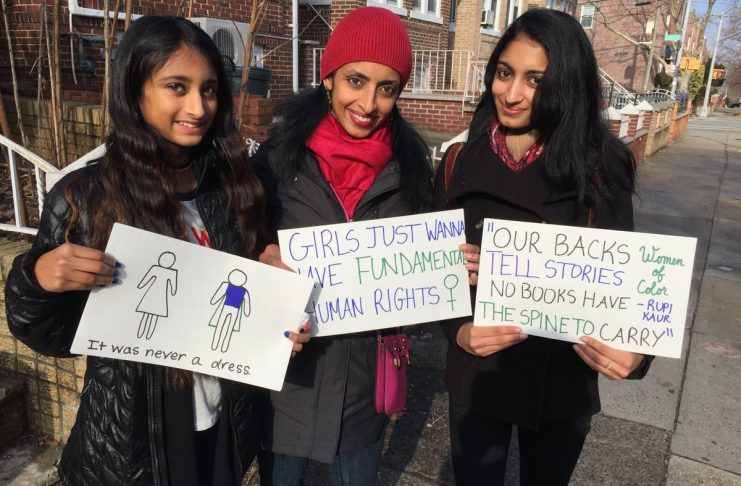 It was never a dress.
GIRLS JUST WANNA
HAVE FUNDAMENTAL
HUMAN RIGHTS
"OUR BACKS
TELL STORIES
NO BOOKS HAVE
THE SPINE TO CARRY"
Women of
Color
- RUPI
KAUR